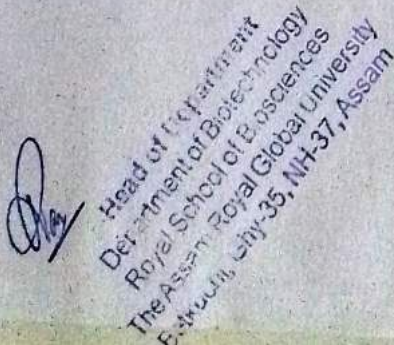 Head of Department
Department of Biotechnology
Royal School of Biosciences
The Assam Royal Global University
Betkuchi, Ghy-35, NH-37, Assam